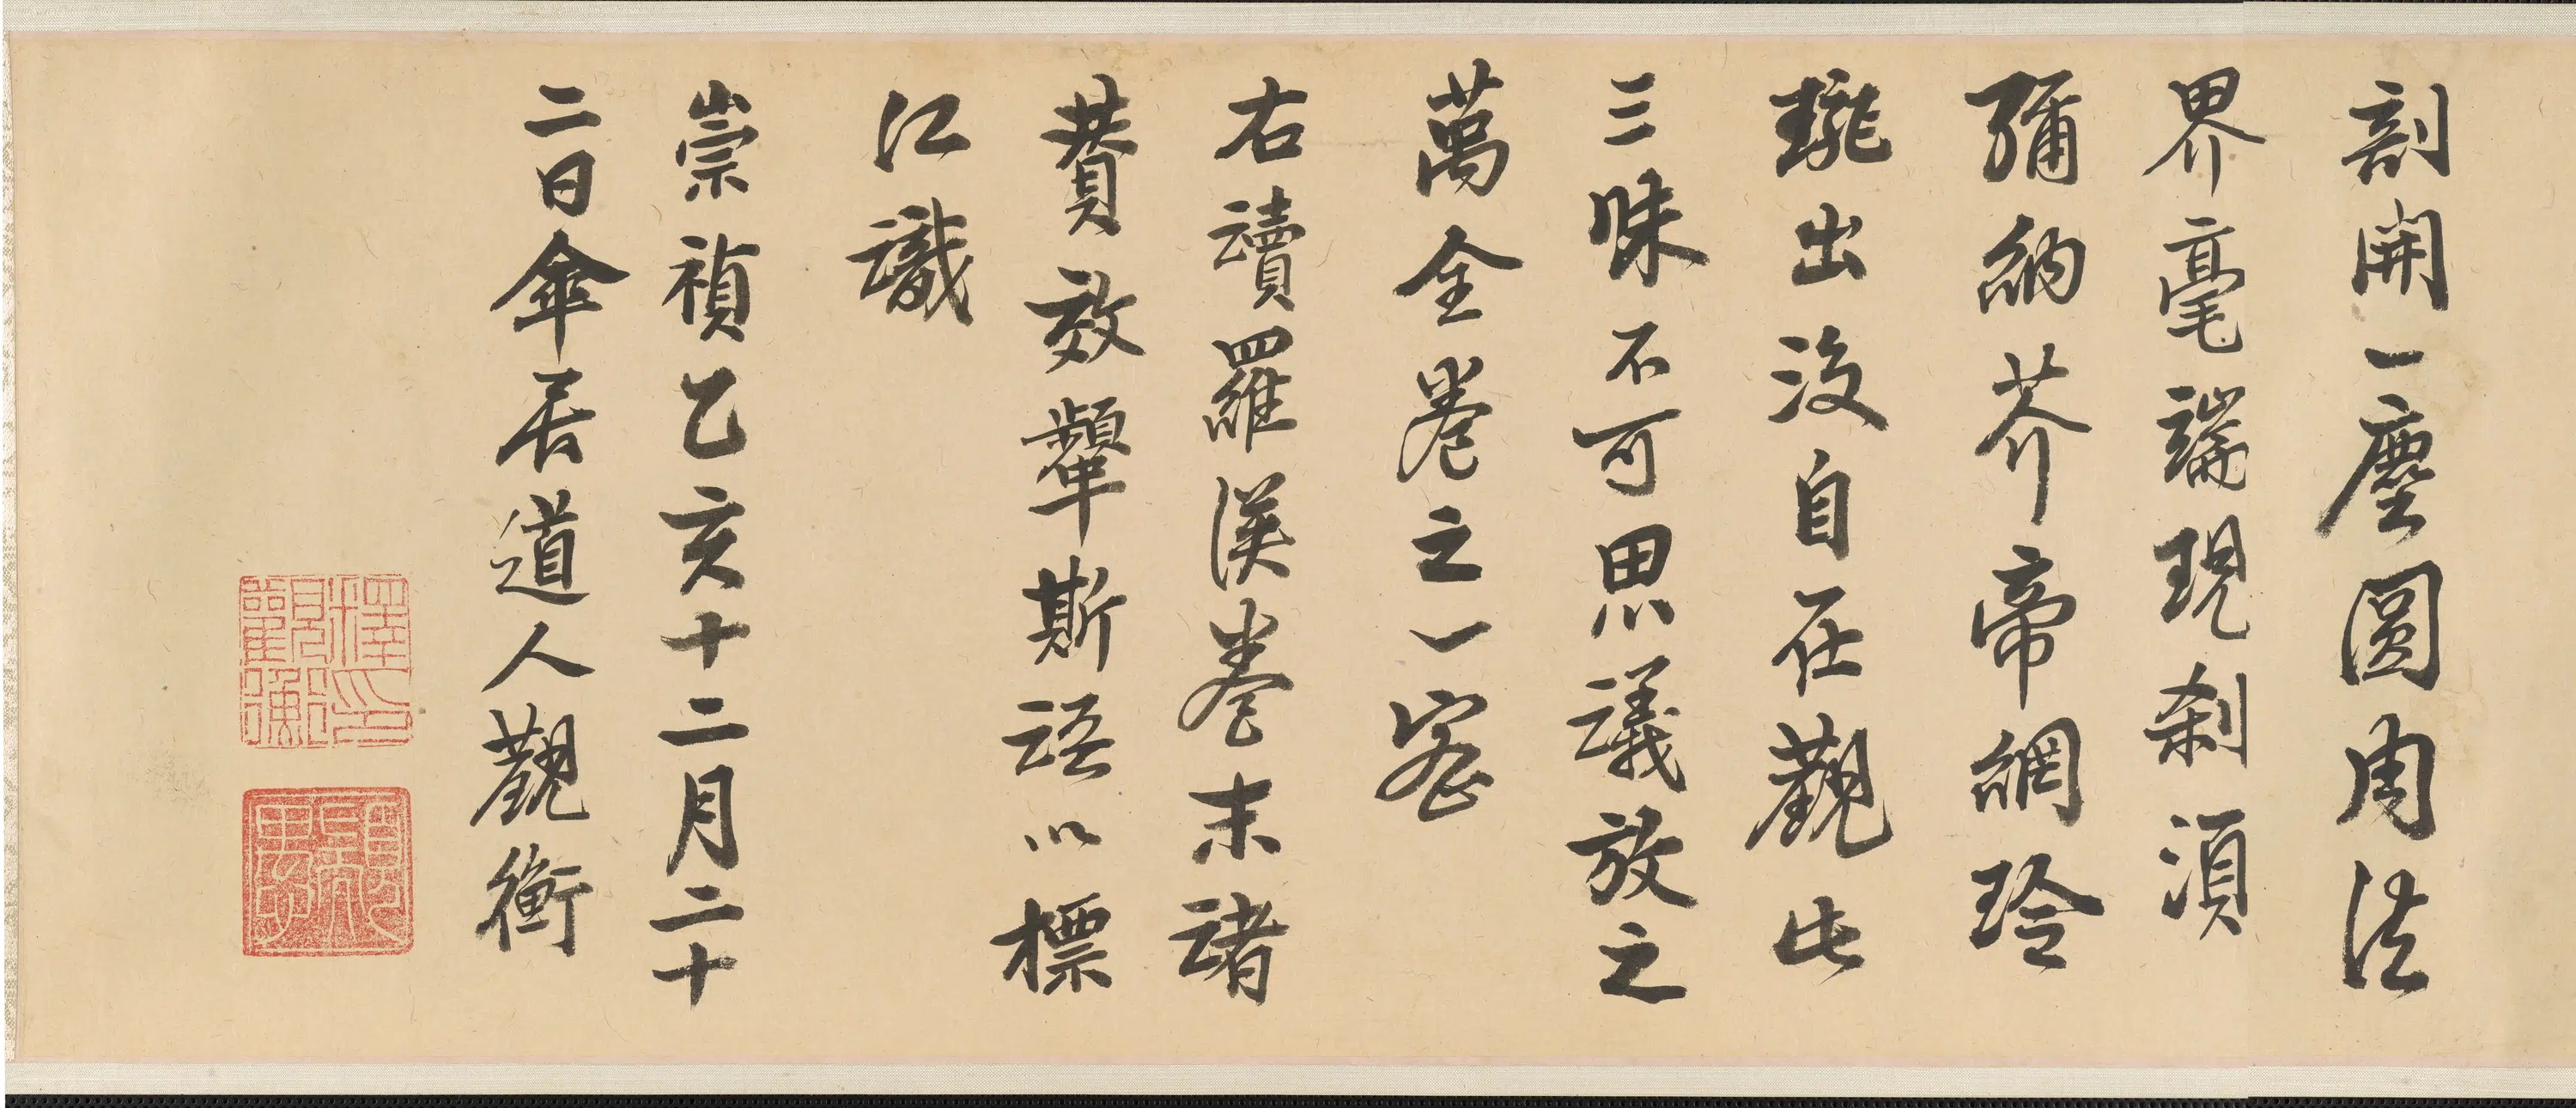 剖開一塵圓周法
界毫端現剎湏
彌納芥帝網玲
瓏出沒自在觀此
三昧不可思議放之
萬全卷之一密
右讀羅漢卷末諸
贊效顰斯語以標
江識
崇禎乙亥十二月二十
二日傘居道人觀衡